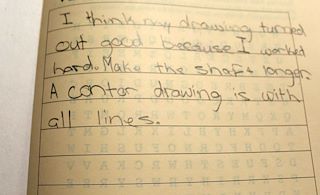 I think my drawing turned
out good because I worked
hard. Make the shaft longer
A contor drawing is with
all lines.